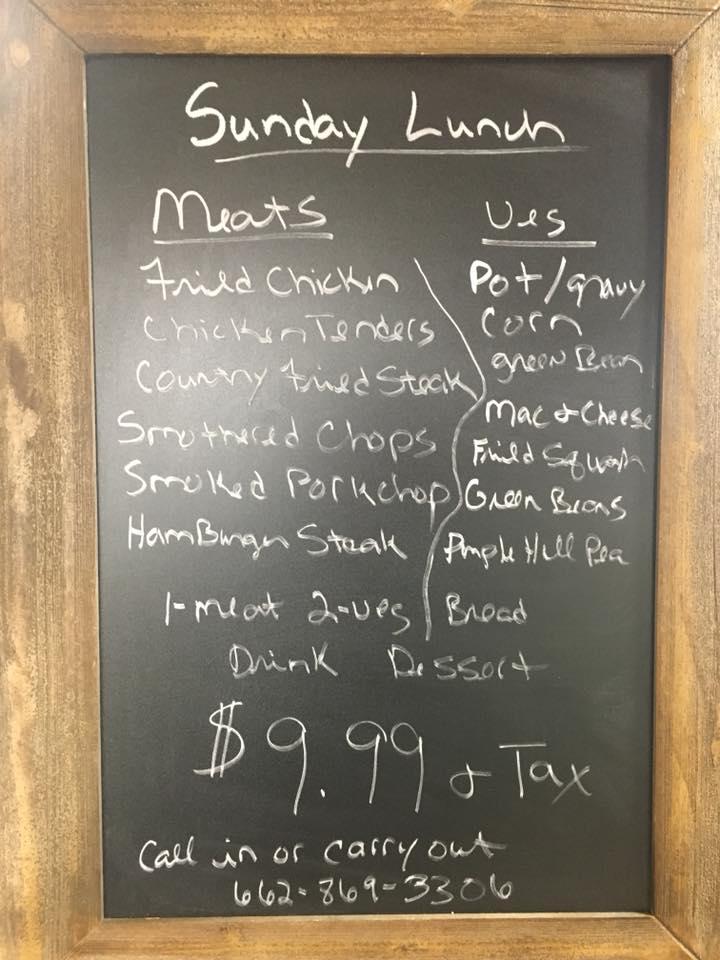 Sunday Lunch
Meats
Fried Chicken
Chicken Tenders
Country Fried Steak
Smothered Chops
Smoked Porkchop
HamBurger Steak
Ves
Pot/gravy
Corn
green Bean
Mac & Cheese
Fried Squash
Green Beans
Purple Hull Pea
1-meat 2-ves Bread
Drink Dessert
$9.99 & Tax
Call in or carry out
662-869-3306